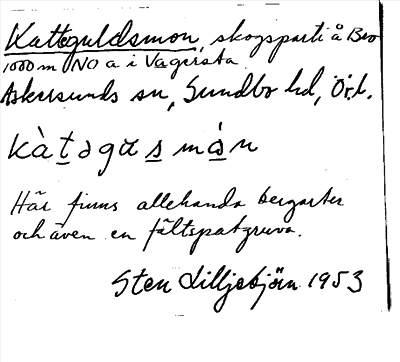 Katteguldsmon, skogsparti å Bro
1000 m NO a i Vagersta
Askersunds sn, Sundbo hd, Ör.l.
kàtəgu smȧn
Här finns allehanda bergarter
och även en fältspatgruva.
Sten Lilljebjörn 1953